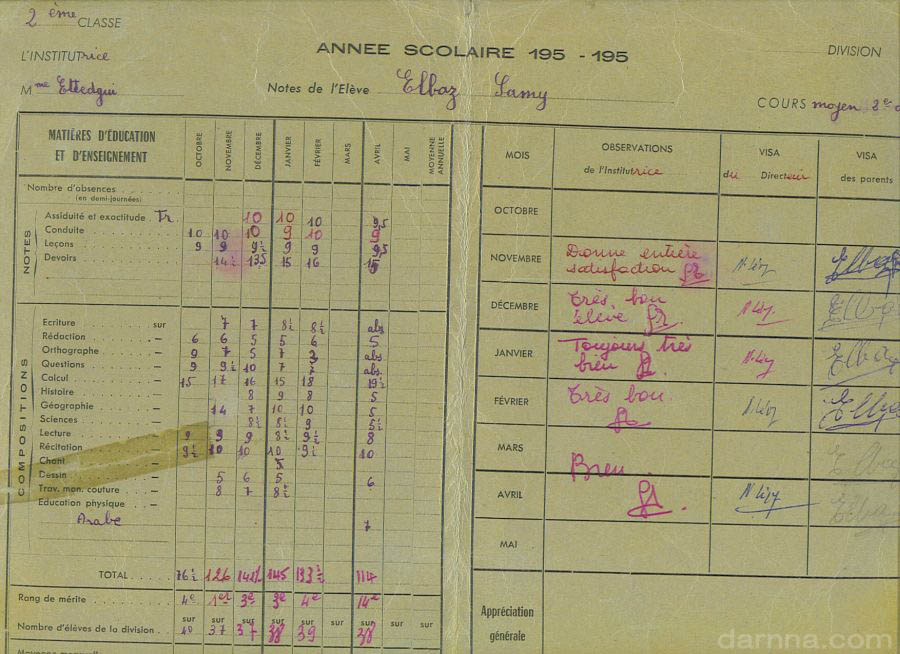 2 ème CLASSE
L'INSTITUTrice
Mme Ettedgui
ANNEE SCOLAIRE 195 - 195
Notes de l'Elève Elbaz Samy
DIVISION
COURS moyen 2e
MATIÈRES D'ÉDUCATION ET D'ENSEIGNEMENT OCTOBRE NOVEMBRE DÉCEMBRE JANVIER FÉVRIER MARS AVRIL MAI MOYENNE ANNUELLE
Nombre d'absences
(en demi-journées)
NOTES
Assiduité et exactitude Tr. 10 10 10 9,5
Conduite 10 10 10 9 10 9
Leçons 9 9 9½ 9 9 9,5
Devoirs 14½ 13,5 15 16 15
COMPOSITIONS
Ecriture sur 7 7 8½ 8½ abs
Rédaction — 6 6 5 5 6 5
Orthographe — 9 7 5 7 3 abs
Questions — 9 9½ 10 7 7 abs
Calcul — 15 17 16 15 18 19½
Histoire — 8 9 8 5
Géographie — 14 7 10 10 5
Sciences — 8½ 8½ 9 5½
Lecture — 9 9 9 8½ 9½ 8
Récitation — 9½ 10 10 10 9½ 10
Chant — 5
Dessin — 5 6 5 6
Trav. man. couture — 8 7 8½
Education physique —
Arabe 7
TOTAL 76½ 126 141½ 145 133½ 114
Rang de mérite 4e 1er 3e 3e 4e 14e
Nombre d'élèves de la division sur 40 sur 37 sur 37 sur 38 sur 39 sur sur 38 sur sur
MOIS OBSERVATIONS de l'Institutrice VISA du Directeur VISA des parents
OCTOBRE
NOVEMBRE Donne entière satisfaction N. Lévy Elbaz
DÉCEMBRE Très bon élève N. Lévy Elbaz
JANVIER Toujours très bien N. Lévy Elbaz
FÉVRIER Très bon N. Lévy Elbaz
MARS Elbaz
AVRIL Bien N. Lévy Elbaz
MAI
Appréciation générale
darnna.com